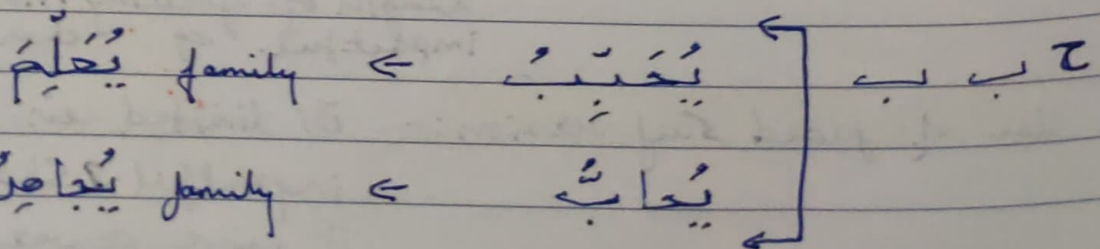 ح ب ب يُحَبِّبُ ← family يُعَلِّمَ
يُحابُّ ← family يُجاهِدُ